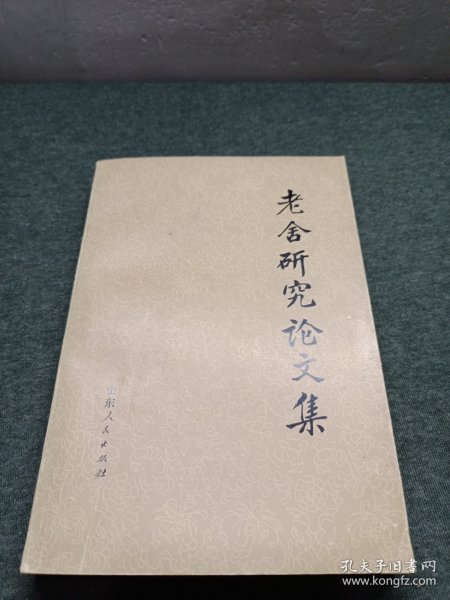 老舍研究论文集
山东人民出版社
孔夫子旧书网
www.kongfz.com